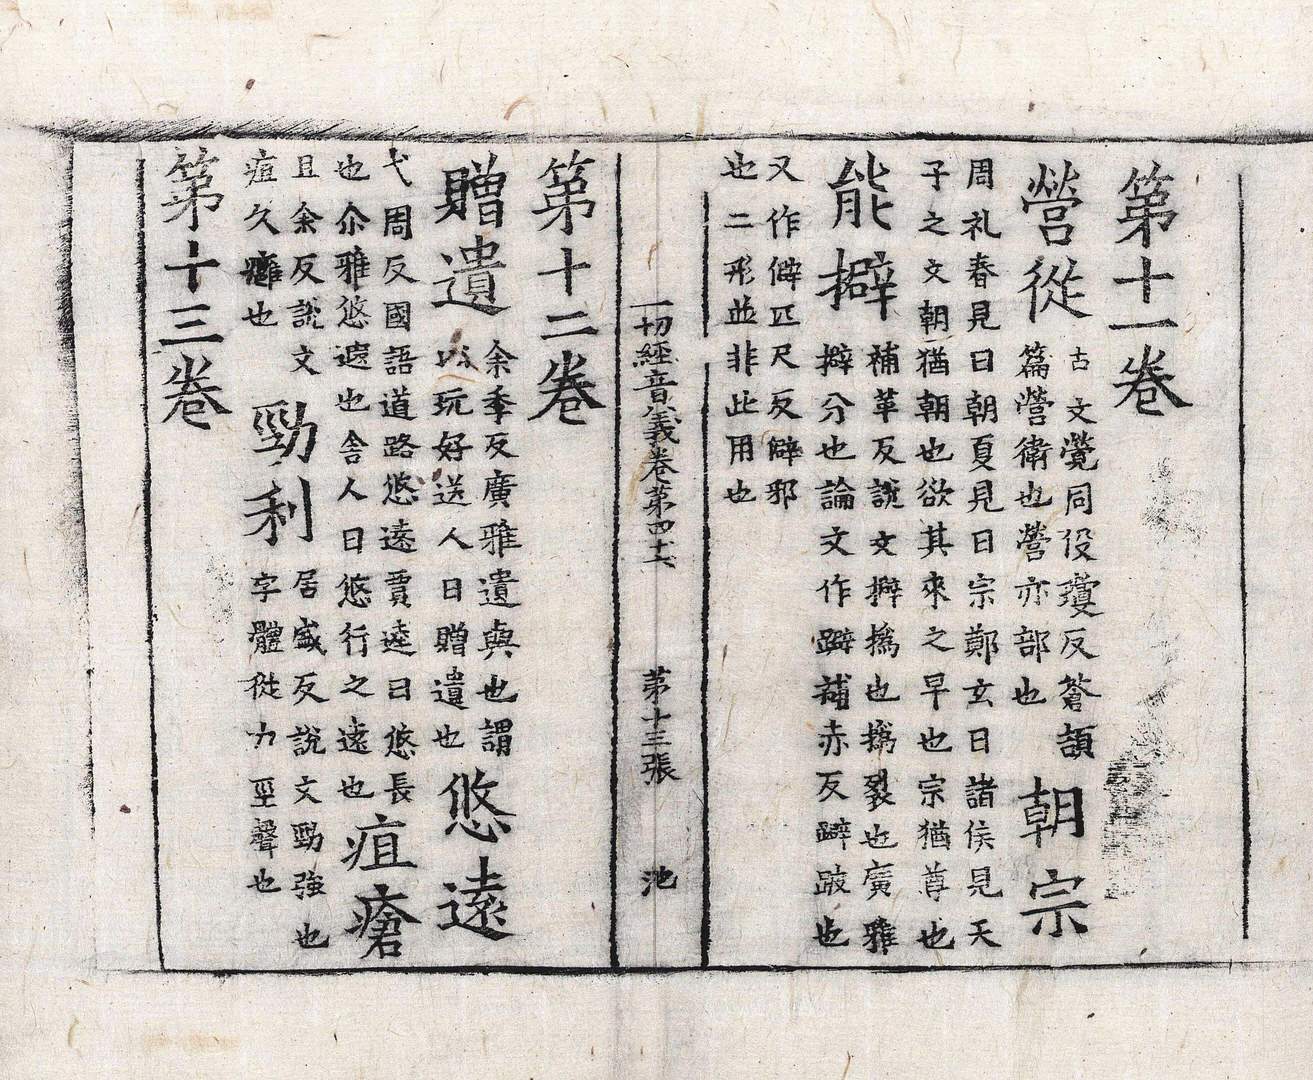 第十一卷
營從
古文覮同役瓊反蒼頡
篇營衛也營亦部也
朝宗
周礼春見曰朝夏見曰宗鄭玄曰諸侯見天
子之文朝猶朝也欲其來之早也宗猶尊也
能擗
補革反說文擗撝也撝裂也廣雅
擗分也論文作躃補赤反躃跛也
又作僻匹尺反僻邪
也二形並非此用也
一切經音義卷第四十六 第十三張 池
第十二卷
贈遺
余季反廣雅遺與也謂
以玩好送人曰贈遺也
悠遠
弋周反國語道路悠遠賈逵曰悠長
也尒雅悠遐也舍人曰悠行之遠也
疽瘡
且余反說文
疽久癰也
勁利
居盛反說文勁強也
字體從力巠聲也
第十三卷